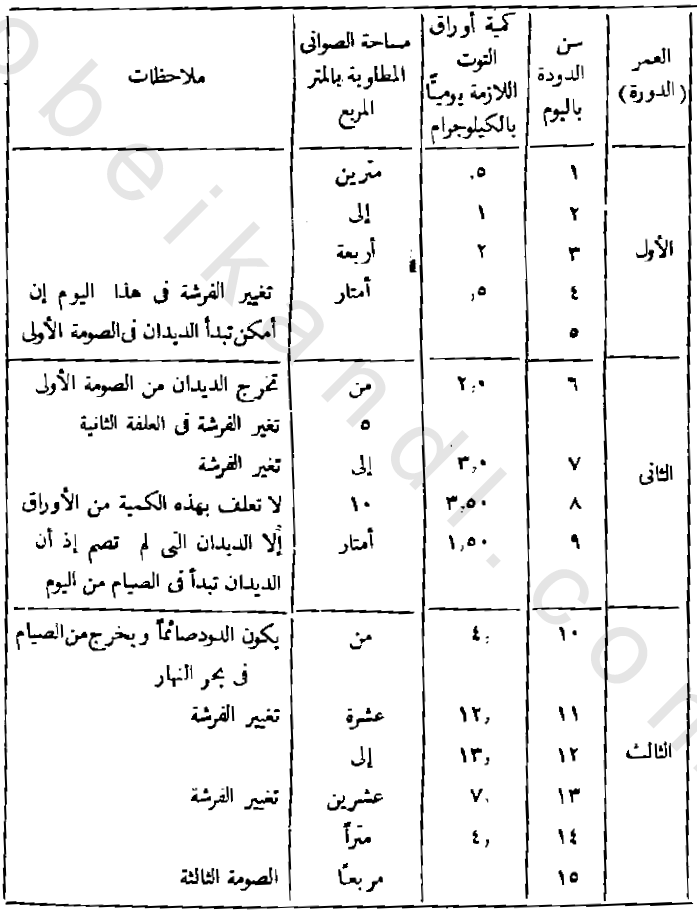 العمر (الدورة) | سن الدودة باليوم | كمية أوراق التوت اللازمة يوميًّا بالكيلوجرام | مساحة الصوانى المطلوبة بالمتر المربع | ملاحظات
الأول | ١ | ,٥ | مترين |
٢ | ١ | إلى |
٣ | ٢ | أربعة |
٤ | ,٥ | أمتار | تغيير الفرشة فى هذا اليوم إن
٥ | أمكن تبدأ الديدان فى الصومة الأولى
الثانى | ٦ | ٢,٠ | من | تخرج الديدان من الصومة الأولى
٥ | تغير الفرشة فى العلفة الثانية
٧ | ٣,٠ | إلى | تغير الفرشة
٨ | ٣,٥٠ | ١٠ | لا تعلف بهذه الكمية من الأوراق
٩ | ١,٥٠ | أمتار | إلا الديدان التى لم تصم إذ أن
الديدان تبدأ فى الصيام من اليوم
الثالث | ١٠ | ٤, | من | يكون الدود صائماً ويخرج من الصيام
فى بحر النهار
١١ | ١٢, | عشرة | تغيير الفرشة
١٢ | ١٣, | إلى |
١٣ | ٧, | عشرين | تغيير الفرشة
١٤ | ٤, | متراً |
١٥ | مربعاً | الصومة الثالثة
obeikandl.com